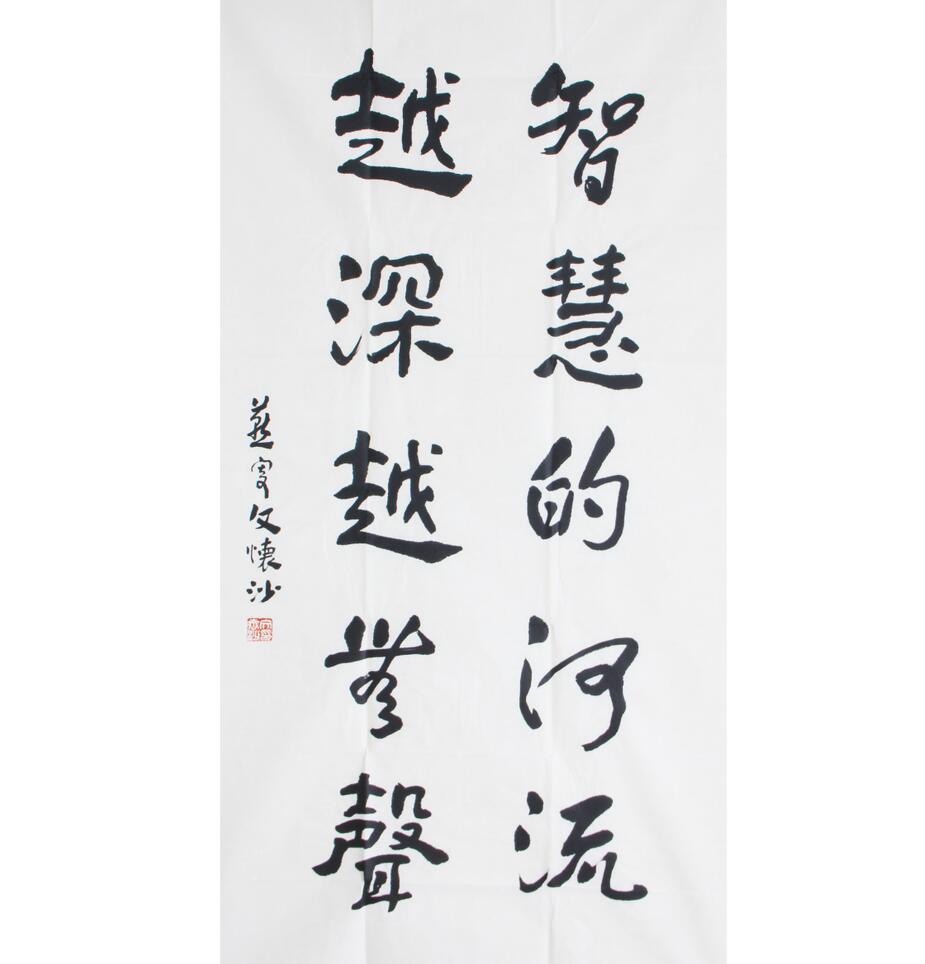 智慧的河流
越深越無聲
燕叟文懷沙